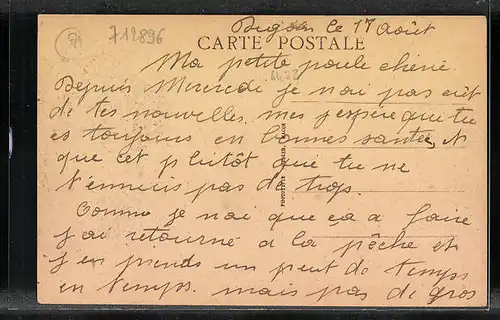 712896
le 17 Août
CARTE POSTALE
Ma petite poule chérie
Depuis Mercredi je n'ai pas eût
de tes nouvelles, mes j'espère que tu
es toujours en bonnes santée, et
que cet plutôt que tu ne
t'ennuis pas de trop.
Comme je n'ai que ça a faire
j'ai retourné a la pêche et
j'en prends un peut de temps
en temps. mais pas de gros